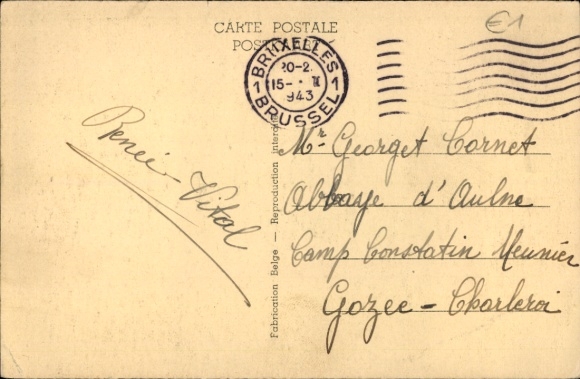 €1
CARTE POSTALE
BRUXELLES
1 1
15-
1943
BRUSSEL
Renée-Vital
Fabrication Belge — Reproduction
Mr Georget Cornet
Abbaye d'Aulne
Camp Constatin Meunier
Gozee-Charleroi